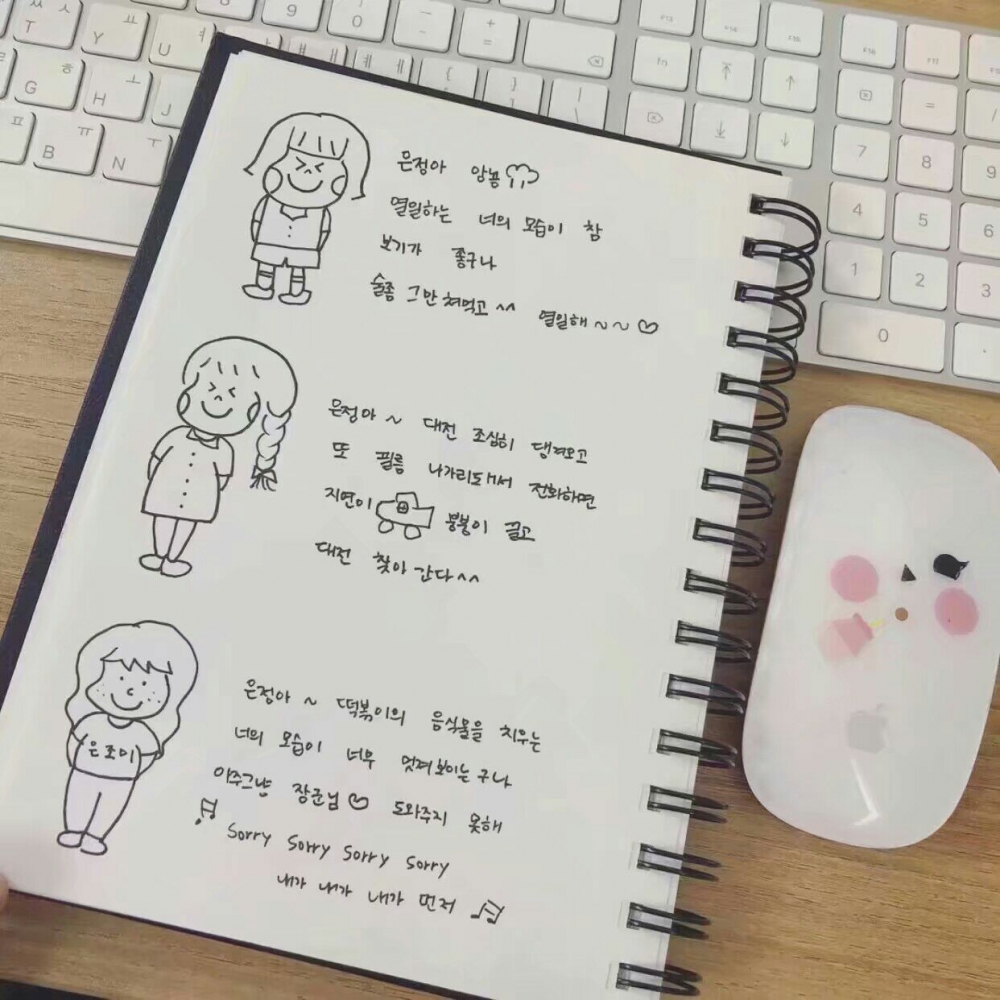 은정아 앙뇽
열일하는 너의 모습이 참
보기가 좋구나
술좀 그만 쳐먹고^^ 열일해~~♡
은정아~ 대전 조심히 댕겨오고
또 필름 나가리돼서 전화하면
지연이 붕붕이 끌고
대전 찾아 간다^^
은정아~ 떡볶이의 음식물을 치우는
너의 모습이 너무 멋져보이는구나
은조이
아주그냥 장군님♡ 도와주지 못해
♬ Sorry Sorry Sorry Sorry
내가 내가 내가 먼저 ♬